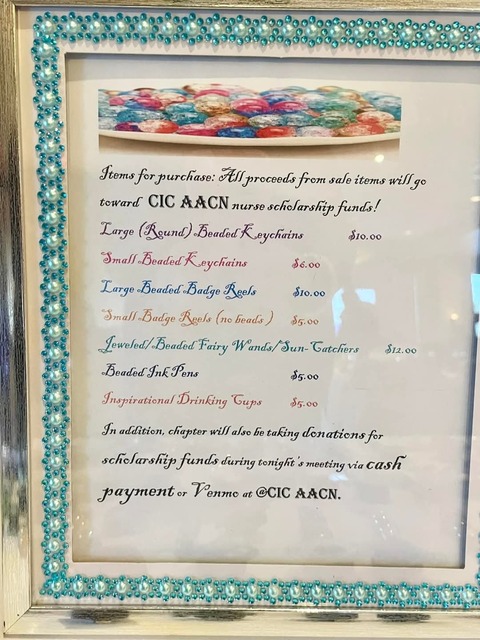 Items for purchase: All proceeds from sale items will go
toward CIC AACN nurse scholarship funds!
Large (Round) Beaded Keychains $10.00
Small Beaded Keychains $6.00
Large Beaded Badge Reels $10.00
Small Badge Reels (no beads ) $5.00
Jeweled/Beaded Fairy Wands/Sun-Catchers $12.00
Beaded Ink Pens $5.00
Inspirational Drinking Cups $5.00
In addition, chapter will also be taking donations for
scholarship funds during tonight's meeting via cash
payment or Venmo at @CIC AACN.